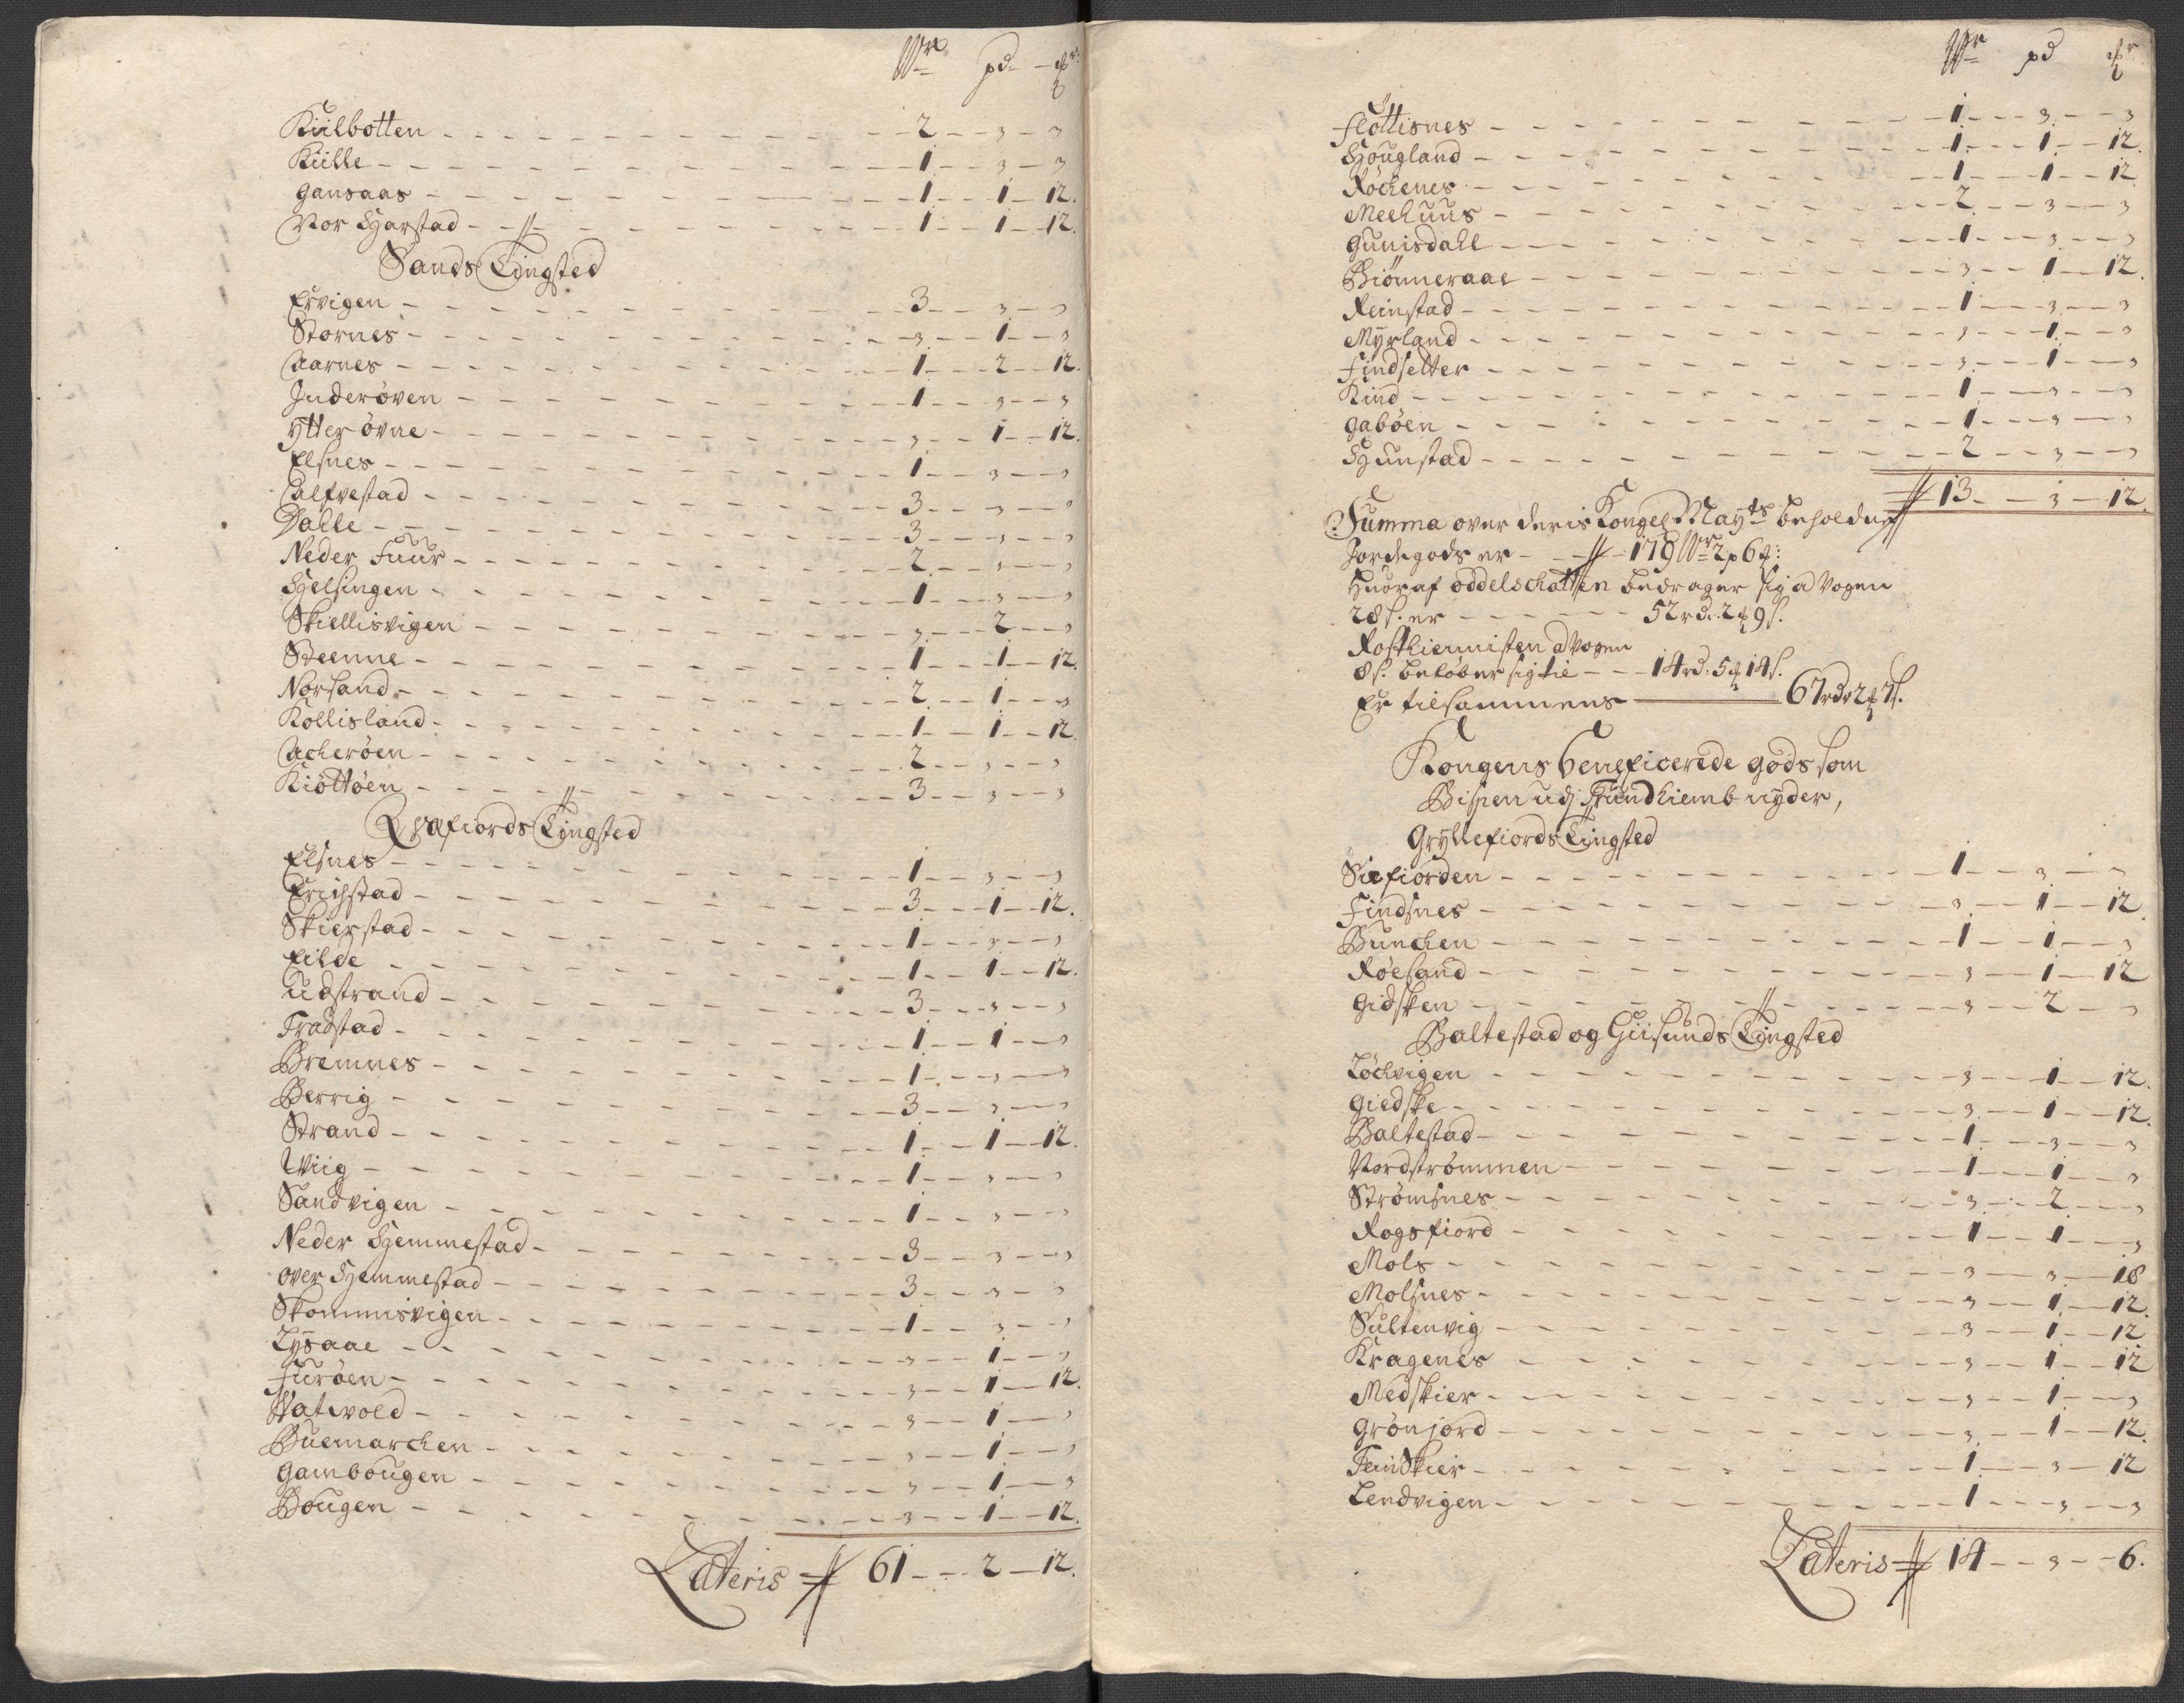 Wr pd
Kiilbotten 2 - 3 - 3
Kiille 1 - 3 - 3
gansaas 1 - 1 - 12.
Nor Harstad 1 - 1 - 12.
Sands Tingsted
Ervigen 3 - 3 - 3
Stornes 3 - 1 - 3
Aarnes 1 - 2 - 12.
Inderøven 1 - 3 - 3
ytterøvne 3 - 1 - 12.
Elsnes 1 - 3 - 3
Calfvestad 3 - 3 - 3
Dalle 3 - 3 - 3
Neder Fuur 2 - 3 - 3
Helsingen 1 - 3 - 3
Skiellisvigen 3 - 2 - 3
Steenne 1 - 1 - 12.
Norsand 2 - 1 - 3
Kollisland 1 - 1 - 12
Acherøen 2 - 3 - 3
Kiøttøen 3 - 3 - 3
Qvæfiords Tingsted
Elsnes 1 - 3 - 3
Erichstad 3 - 1 - 12.
Skierstad 1 - 3 - 3
Eilde 1 - 1 - 12.
Udstrand 3 - 3 - 3
Tradstad 1 - 1 - 3
Bremnes 1 - 3 - 3
Berrig 3 - 3 - 3
Strand 1 - 1 - 12.
Wiig 1 - 3 - 3
Sandvigen 1 - 3 - 3
Neder Hemmestad 3 - 3 - 3
over Hemmestad 3 - 3 - 3
Skommisvigen 1 - 3 - 3
Lysaae 3 - 1 - 3
Furøen 3 - 1 - 12.
Watwold 3 - 1 - 3
Buemarchen 3 - 1 - 3
Gambougen 3 - 1 - 3
Bougen 3 - 1 - 12.
Lateris 61 - 2 - 12.
Wr pd
Flottisnes 1 - 3 - 3
Hougland 1 - 1 - 12.
Røchenes 1 - 1 - 12
Meehuus 2 - 3 - 3
Gunisdahl 1 - 3 - 3
Biønneraae 3 - 1 - 12.
Reinstad 1 - 3 - 3
Myrland 3 - 1 - 3
Findsetter 3 - 1 - 3
Kind 1 - 3 - 3
Gabøen 1 - 3 - 3
Hunstad 2 - 3 - 3
13 - 3 - 12.
Summa over deris Kongel Mayts beholdne
Jordegods er 179 Wr 2 p 6
Huoraf oddelschatten bedrager sig a Vogen
28 s. er 52 rd. 2 9 s.
Rosthiennisten a Vogen
8 s. beløber sig tie 14 rd. 5 14 s.
Er tilsammens 67 rdr 2 7 s.
Kongens beneficerede gods som
Bispen udj Trundhiemb nyder,
Gryllefiords Tingsted
Siefiorden 1 - 3 - 3
Findsnes 3 - 1 - 12.
Bunchen 1 - 1 - 3
Røesand 3 - 1 - 12
Gidsken 3 - 2 - 3
Baltestad og Giisunds Tingsted
Lochvigen 3 - 1 - 12.
Giedske 3 - 1 - 12.
Baltestad 1 - 3 - 3
Nordstrømmen 1 - 1 - 3
Strømsnes 3 - 2 - 3
Rogsfiord 1 - 1 - 3
Mols 3 - 3 - 18
Molsnes 3 - 1 - 12.
Sultenvig 3 - 1 - 12
Kragenes 3 - 1 - 12
Medskier 3 - 1 - 3
Grønjord 3 - 1 - 12.
Feinskier 1 - 3 - 12
Lendvigen 1 - 3 - 3
Lateris 14 - 3 - 6.